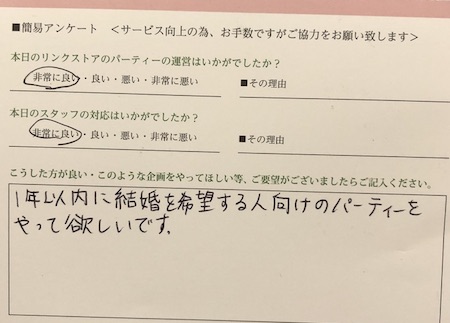 ■簡易アンケート ＜サービス向上の為、お手数ですがご協力をお願い致します＞
本日のリンクストアのパーティーの運営はいかがでしたか？
非常に良い・良い・悪い・非常に悪い ■その理由
本日のスタッフの対応はいかがでしたか？
非常に良い・良い・悪い・非常に悪い ■その理由
こうした方が良い・このような企画をやってほしい等、ご要望がございましたらご記入ください。
1年以内に結婚を希望する人向けのパーティーを
やって欲しいです。